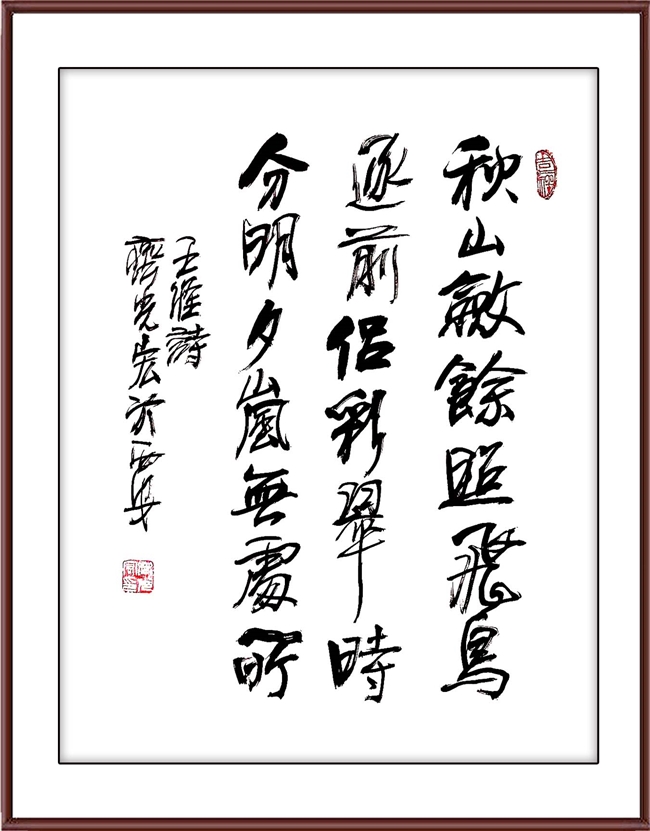 吉祥
秋山斂餘照飛鳥
逐前侶彩翠時
分明夕嵐無處所
王維詩
光宏於